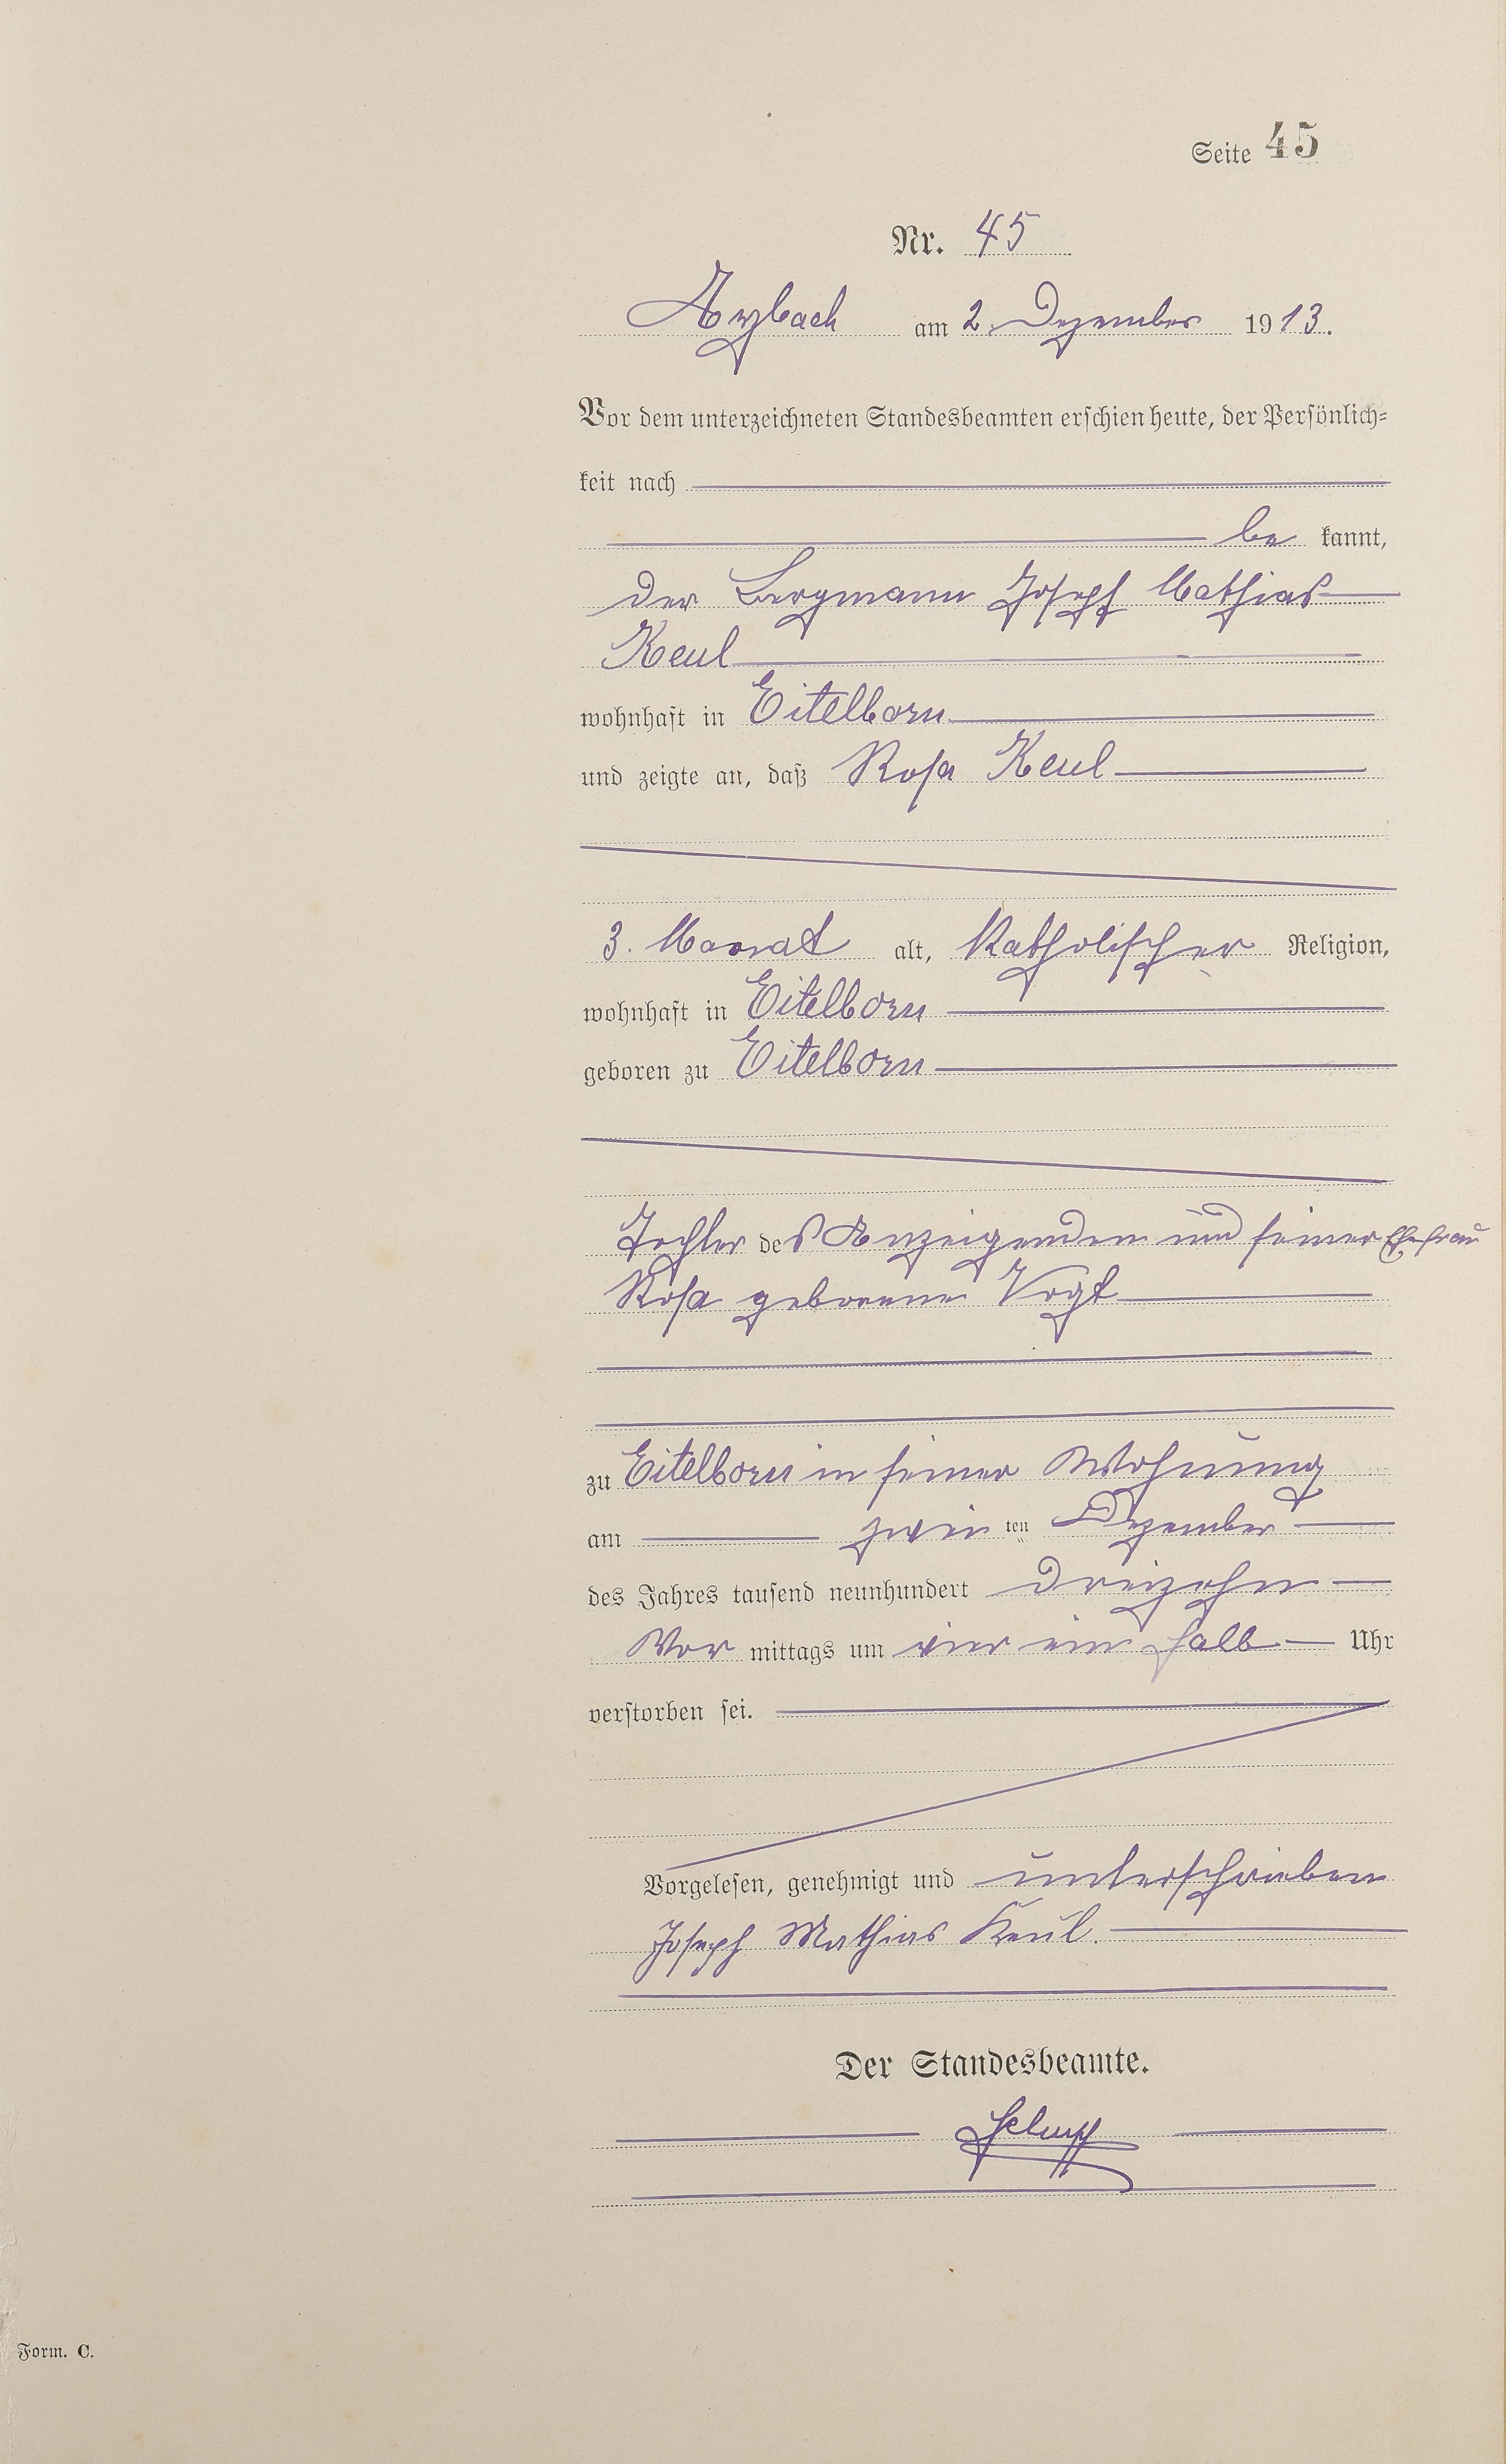 Seite 45
Nr. 45
Arzbach am 2. Dezember 1913.
Vor dem unterzeichneten Standesbeamten erschien heute, der Persönlich-
keit nach
be kannt,
der Bergmann Joseph Mathias
Keul
wohnhaft in Eitelborn
und zeigte an, daß Rosa Keul
3. Monat alt, Katholischer Religion,
wohnhaft in Eitelborn
geboren zu Eitelborn
Tochter des Anzeigenden und seiner Ehefrau
Rosa geborene Vogt
zu Eitelborn in seiner Wohnung
am zwei ten Dezember
des Jahres tausend neunhundert dreizehn
Vor mittags um vier ein halb Uhr
verstorben sei.
Vorgelesen, genehmigt und unterschrieben
Joseph Mathias Keul.
Der Standesbeamte.
Form. C.